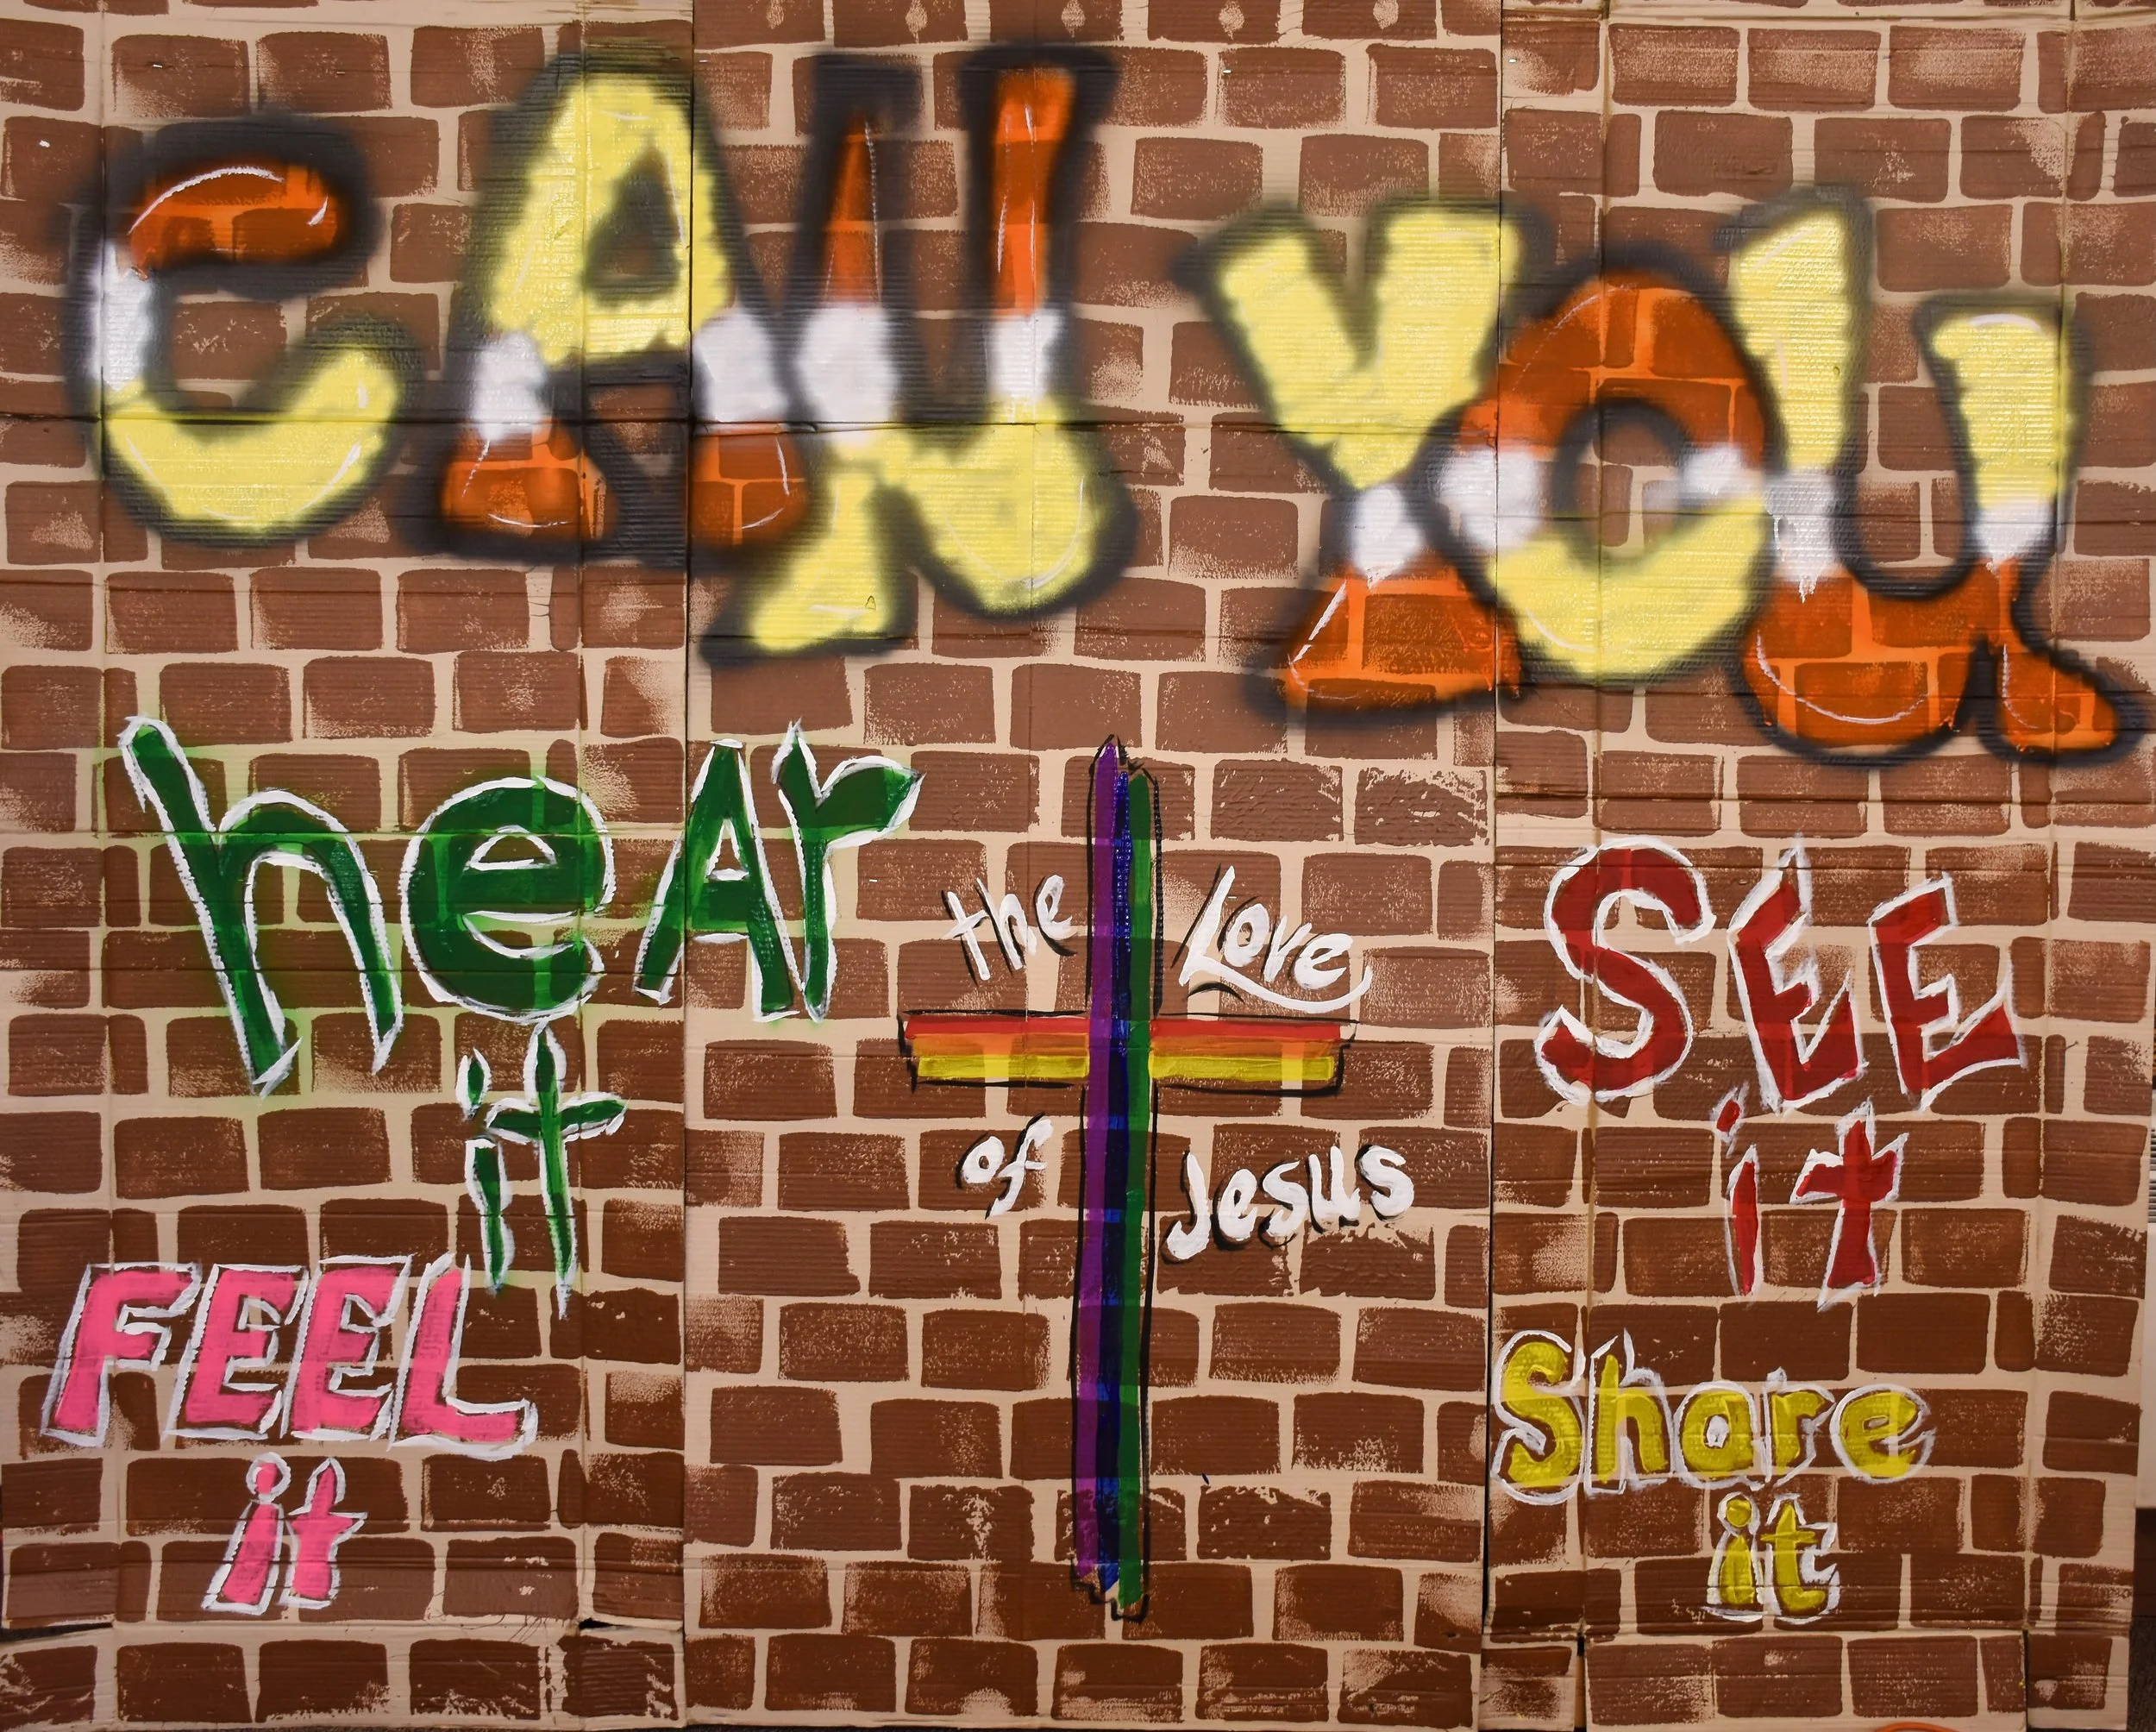 CAN YOU
heAr
it
the Love
of Jesus
SEE
it
FEEL
it
Share
it